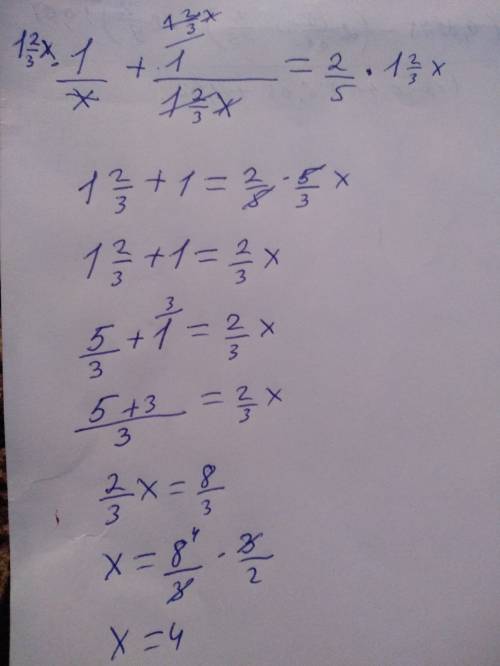 1 2/3 x · 1/x + 1 2/3 x · 1/(1 2/3 x) = 2/5 · 1 2/3 x
1 2/3 + 1 = 2/5 · 5/3 x
1 2/3 + 1 = 2/3 x
5/3 + 1 ³ = 2/3 x
(5+3)/3 = 2/3 x
2/3 x = 8/3
x = 8⁴/3 · 3/2
x = 4